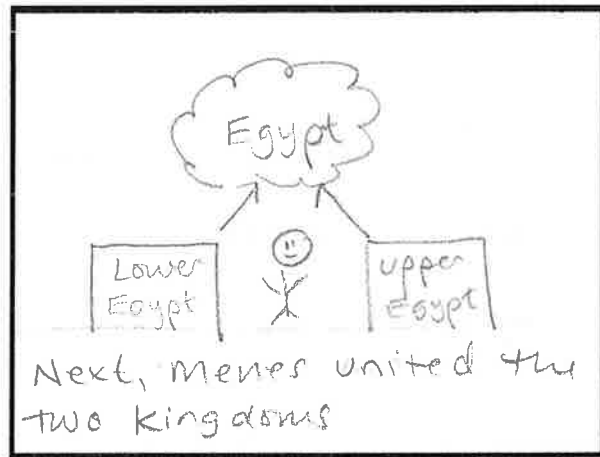 Egypt
Lower
Egypt
upper
Egypt
Next, Menes united the
two kingdoms